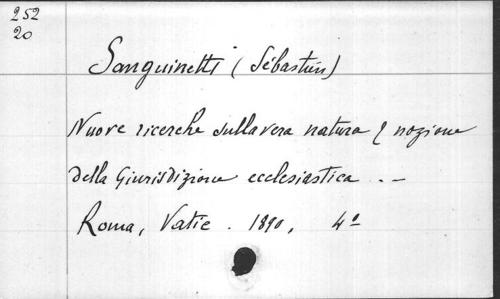 252
20
Sanguinetti (Sébastien)
Nuove ricerche sulla vera natura & nozione
della Giurisdizione ecclesiastica . —
Roma, Vatic . 1890, 4º